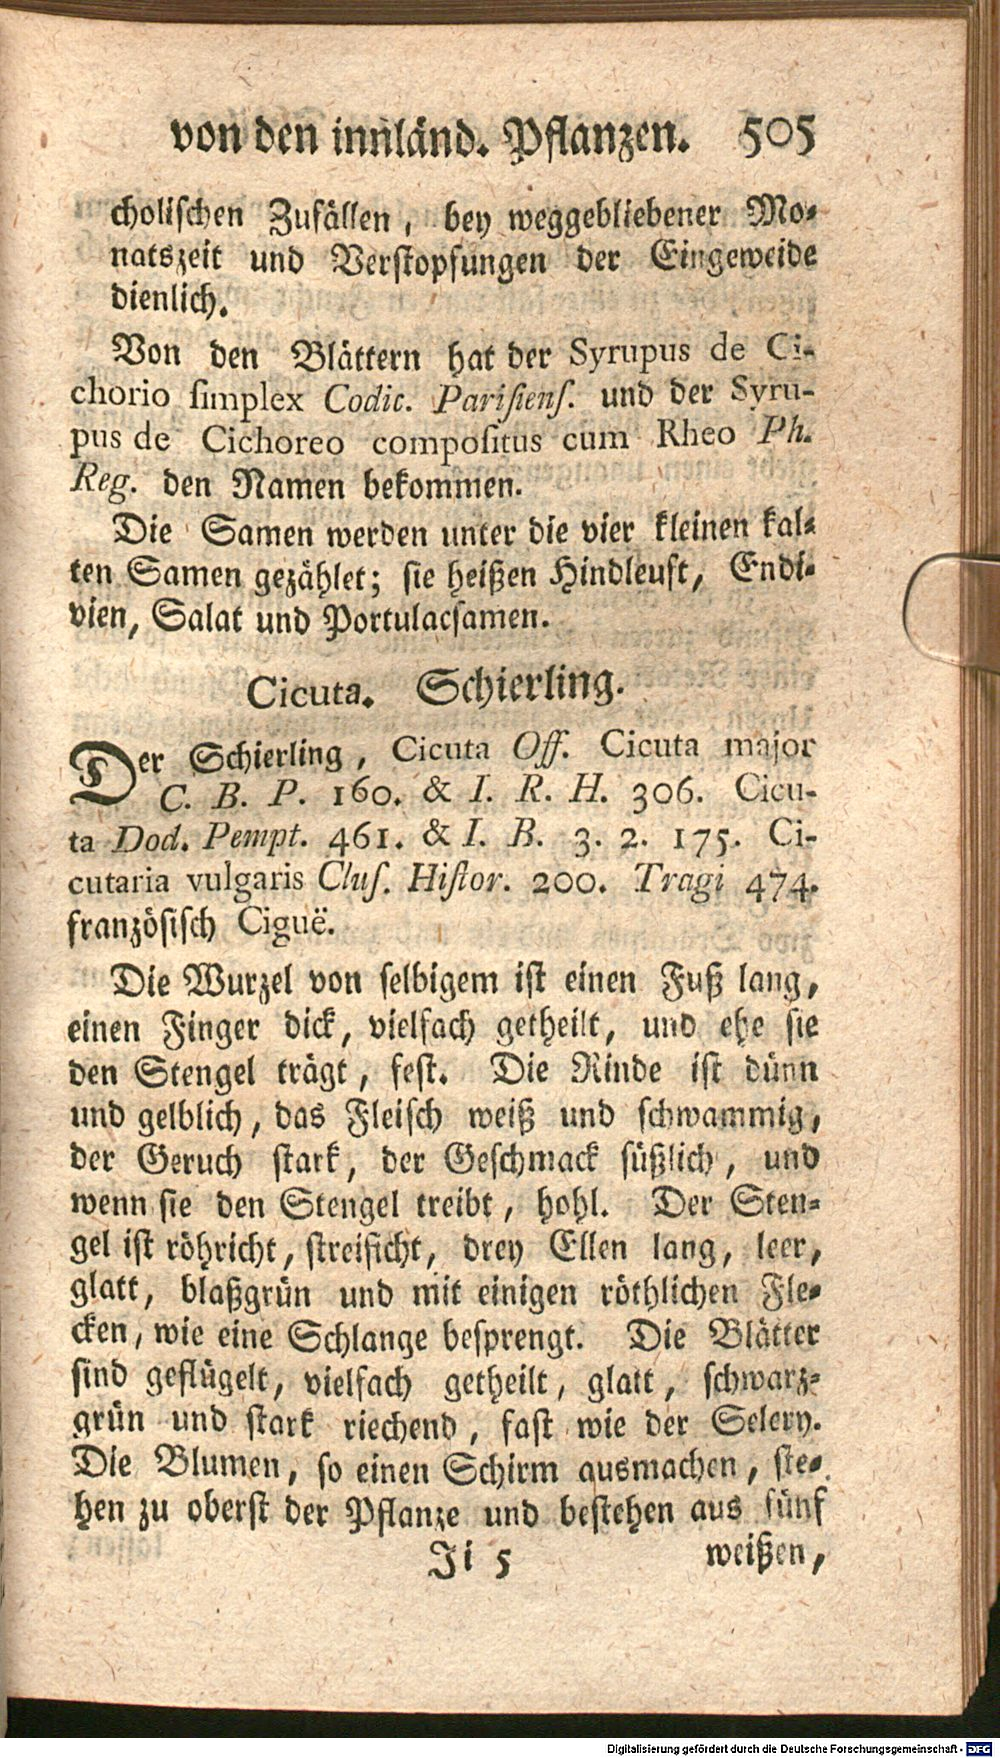 von den innländ. Pflanzen. 505
cholischen Zufällen, bey weggebliebener Mo-
natszeit und Verstopfungen der Eingeweide
dienlich.
Von den Blättern hat der Syrupus de Ci-
chorio simplex Codic. Parisiens. und der Syru-
pus de Cichoreo compositus cum Rheo Ph.
Reg. den Namen bekommen.
Die Samen werden unter die vier kleinen kal-
ten Samen gezählet; sie heißen Hindleuft, Endi-
vien, Salat und Portulacsamen.
Cicuta. Schierling.
Der Schierling, Cicuta Off. Cicuta major
C. B. P. 160. & I. R. H. 306. Cicu-
ta Dod. Pempt. 461. & I. B. 3. 2. 175. Ci-
cutaria vulgaris Clus. Histor. 200. Tragi 474.
französisch Ciguë.
Die Wurzel von selbigem ist einen Fuß lang,
einen Finger dick, vielfach getheilt, und ehe sie
den Stengel trägt, fest. Die Rinde ist dünn
und gelblich, das Fleisch weiß und schwammig,
der Geruch stark, der Geschmack süßlich, und
wenn sie den Stengel treibt, hohl. Der Sten-
gel ist röhricht, streificht, drey Ellen lang, leer,
glatt, blaßgrün und mit einigen röthlichen Fle-
cken, wie eine Schlange besprengt. Die Blätter
sind geflügelt, vielfach getheilt, glatt, schwarz-
grün und stark riechend, fast wie der Selery.
Die Blumen, so einen Schirm ausmachen, ste-
hen zu oberst der Pflanze und bestehen aus fünf
Ji 5 weißen,
Digitalisierung gefördert durch die Deutsche Forschungsgemeinschaft - DFG